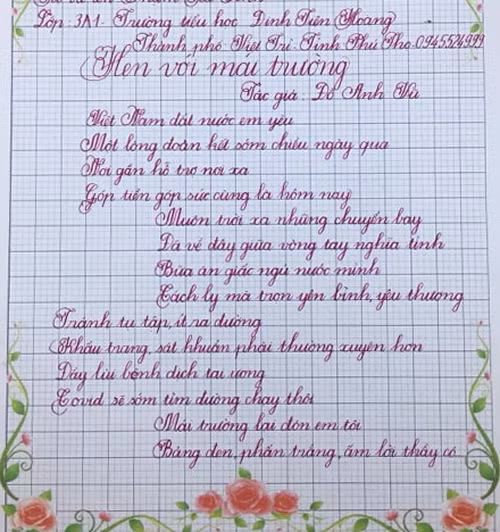 Lớp: 3A1 - Trường tiểu học Đinh Tiên Hoàng
Thành phố Việt Trì - Tỉnh Phú Thọ. 0945524999
Hẹn với mái trường
Tác giả: Đỗ Anh Vũ
Việt Nam đất nước em yêu
Một lòng đoàn kết sớm chiều ngày qua
Nơi gần hỗ trợ nơi xa
Góp tiền góp sức cùng là hôm nay
Muôn trời xa những chuyến bay
Đã về đây giữa vòng tay nghĩa tình
Bữa ăn giấc ngủ nước mình
Cách ly mà trọn yên bình, yêu thương
Tránh tụ tập, ít ra đường
Khẩu trang, sát khuẩn phải thường xuyên hơn
Đẩy lùi bệnh dịch tai ương
Covid sẽ sớm tìm đường chạy thôi
Mái trường lại đón em tôi
Bảng đen, phấn trắng, ấm lời thầy cô